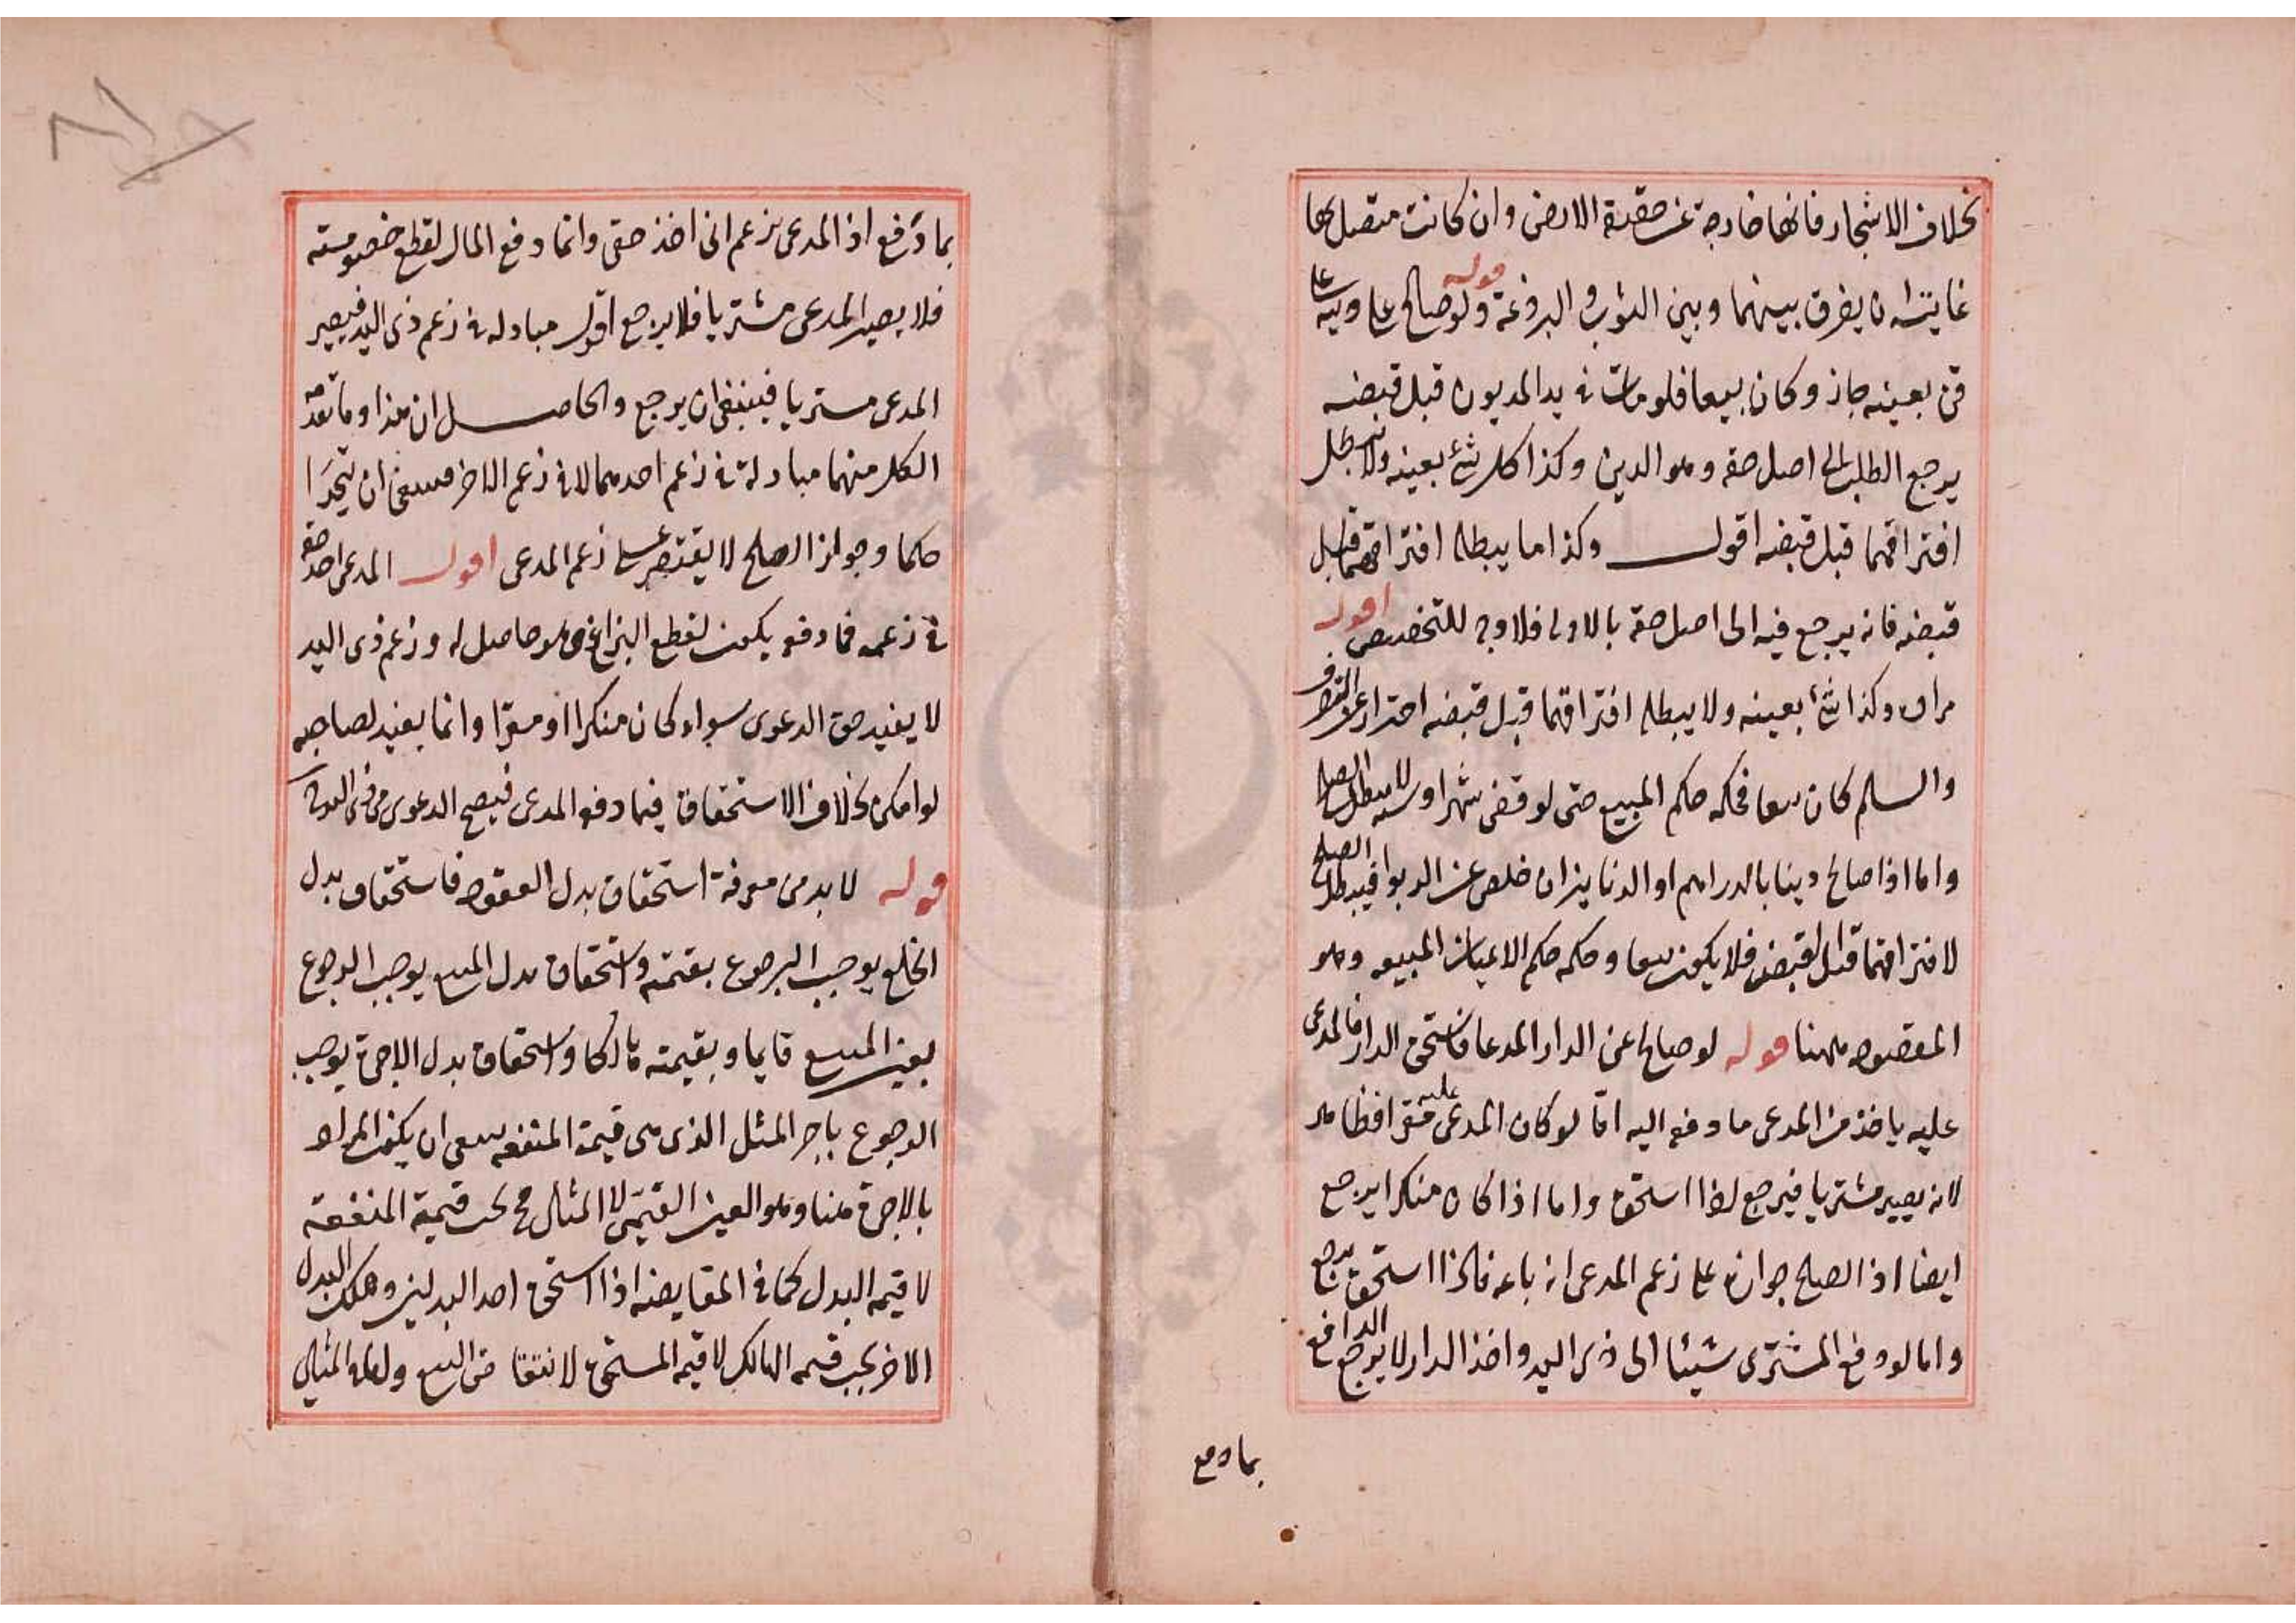 بخلاف الاشجار فانها خارجة عن حقيقة الارض وان كانت متصل بها
غايته ان يفرق بينهما وبين الثوب و البروعة قوله ولو صالح على دينه على
قن بعينه جاز وكان بيعا فلو مات فى يد المديون قبل قبضه
يرجع الطلب الى اصل حقه وهو الدين وكذا كل شئ بعينه ولا يبطل
افتراقهما قبل قبضه اقول وكذا ما يبطله افتراقهما قبل
قبضه فانه يرجع فيه الى اصل حقه بالاولى فلا وجه للتخصيص اقول
مراده وكذا شئ بعينه ولا يبطله افتراقهما قبل قبضه احترازا عن الصرف
والسلم كان بيعا فحكمه حكم المبيع حتى لو قضى شهرا او سنة لا يبطل الصلح
واما اذا صالح دينا بالدراهم او الدنانيران خلص عن الربوا فيبطل الصلح
لافتراقهما قبل القبض فلا يكون بيعا وحكمه حكم الاعيان المبيعه وهو
المقصود ههنا قوله لو صالح عن الدار المدعا فاستحق الدار فالمدعى
عليه ياخذ من المدعى ما دفعه اليه امّا لو كان المدعى عليه مقرا فظاهر
لانه يصير مشتريا فيرجع اذا استحق واما اذا كان منكرا يرجع
ايضا اذ الصلح جوازه على زعم المدعى انه باعه فاذا استحق يرجع
واما لو دفع المشترى شيئا الى ذى اليد واخذ الدار لا يرجع الدافع
بما دفع
بما دَفع اذ المدعى يزعم انى اخذ حقى وانما دفع المال لقطع خصومته
فلا يصير المدعى مشتريا فلا يرجع اقول مبادله فى زعم ذى اليد فيصير
المدعى مستريا فينبغى ان يرجع والحاصل ان هذا وما تقدمه
الكل منهما مبادلة فى زعم احدهما لا فى زعم الاخر فينبغى ان يتحدا
حكما وجواز الصلح لا يقتصر على زعم المدعى اقول المدعى اخذ حقه
فى زعمه فما دفعه يكون لقطع النزاع وهو حاصل له وزعم ذى اليد
لا يفيد حق الدعوى سواء كان منكرا او مقرّا وانما يفيد لصاحبه
لو امكن بخلاف الاستحقاق فيما دفعه المدعى فيصح الدعوى من ذى اليد
قوله لا بد من معرفة استحقاق بدل العقود فاستحقاق بدل
الخلع يوجب الرجوع بقيمته واستحقاق بدل المبيع يوجب الرجوع
بعين المبيع قايما وبقيمته هالكا واستحقاق بدل الاجرة يوجب
الرجوع باجر المثل الذى هى قيمة المنفعه ينبغى ان يكون المراد
بالاجرة هنا وهو العين القيمى لا المثلى ح تجب قيمة المنفعة
لا قيمه البدل كما فى المقايضه اذا استحق احد البدلين وهلك البدل
الاخر يجب قيمه الهالك لا قيمه المستحق لانتقا ض البيع وامّا المثلى